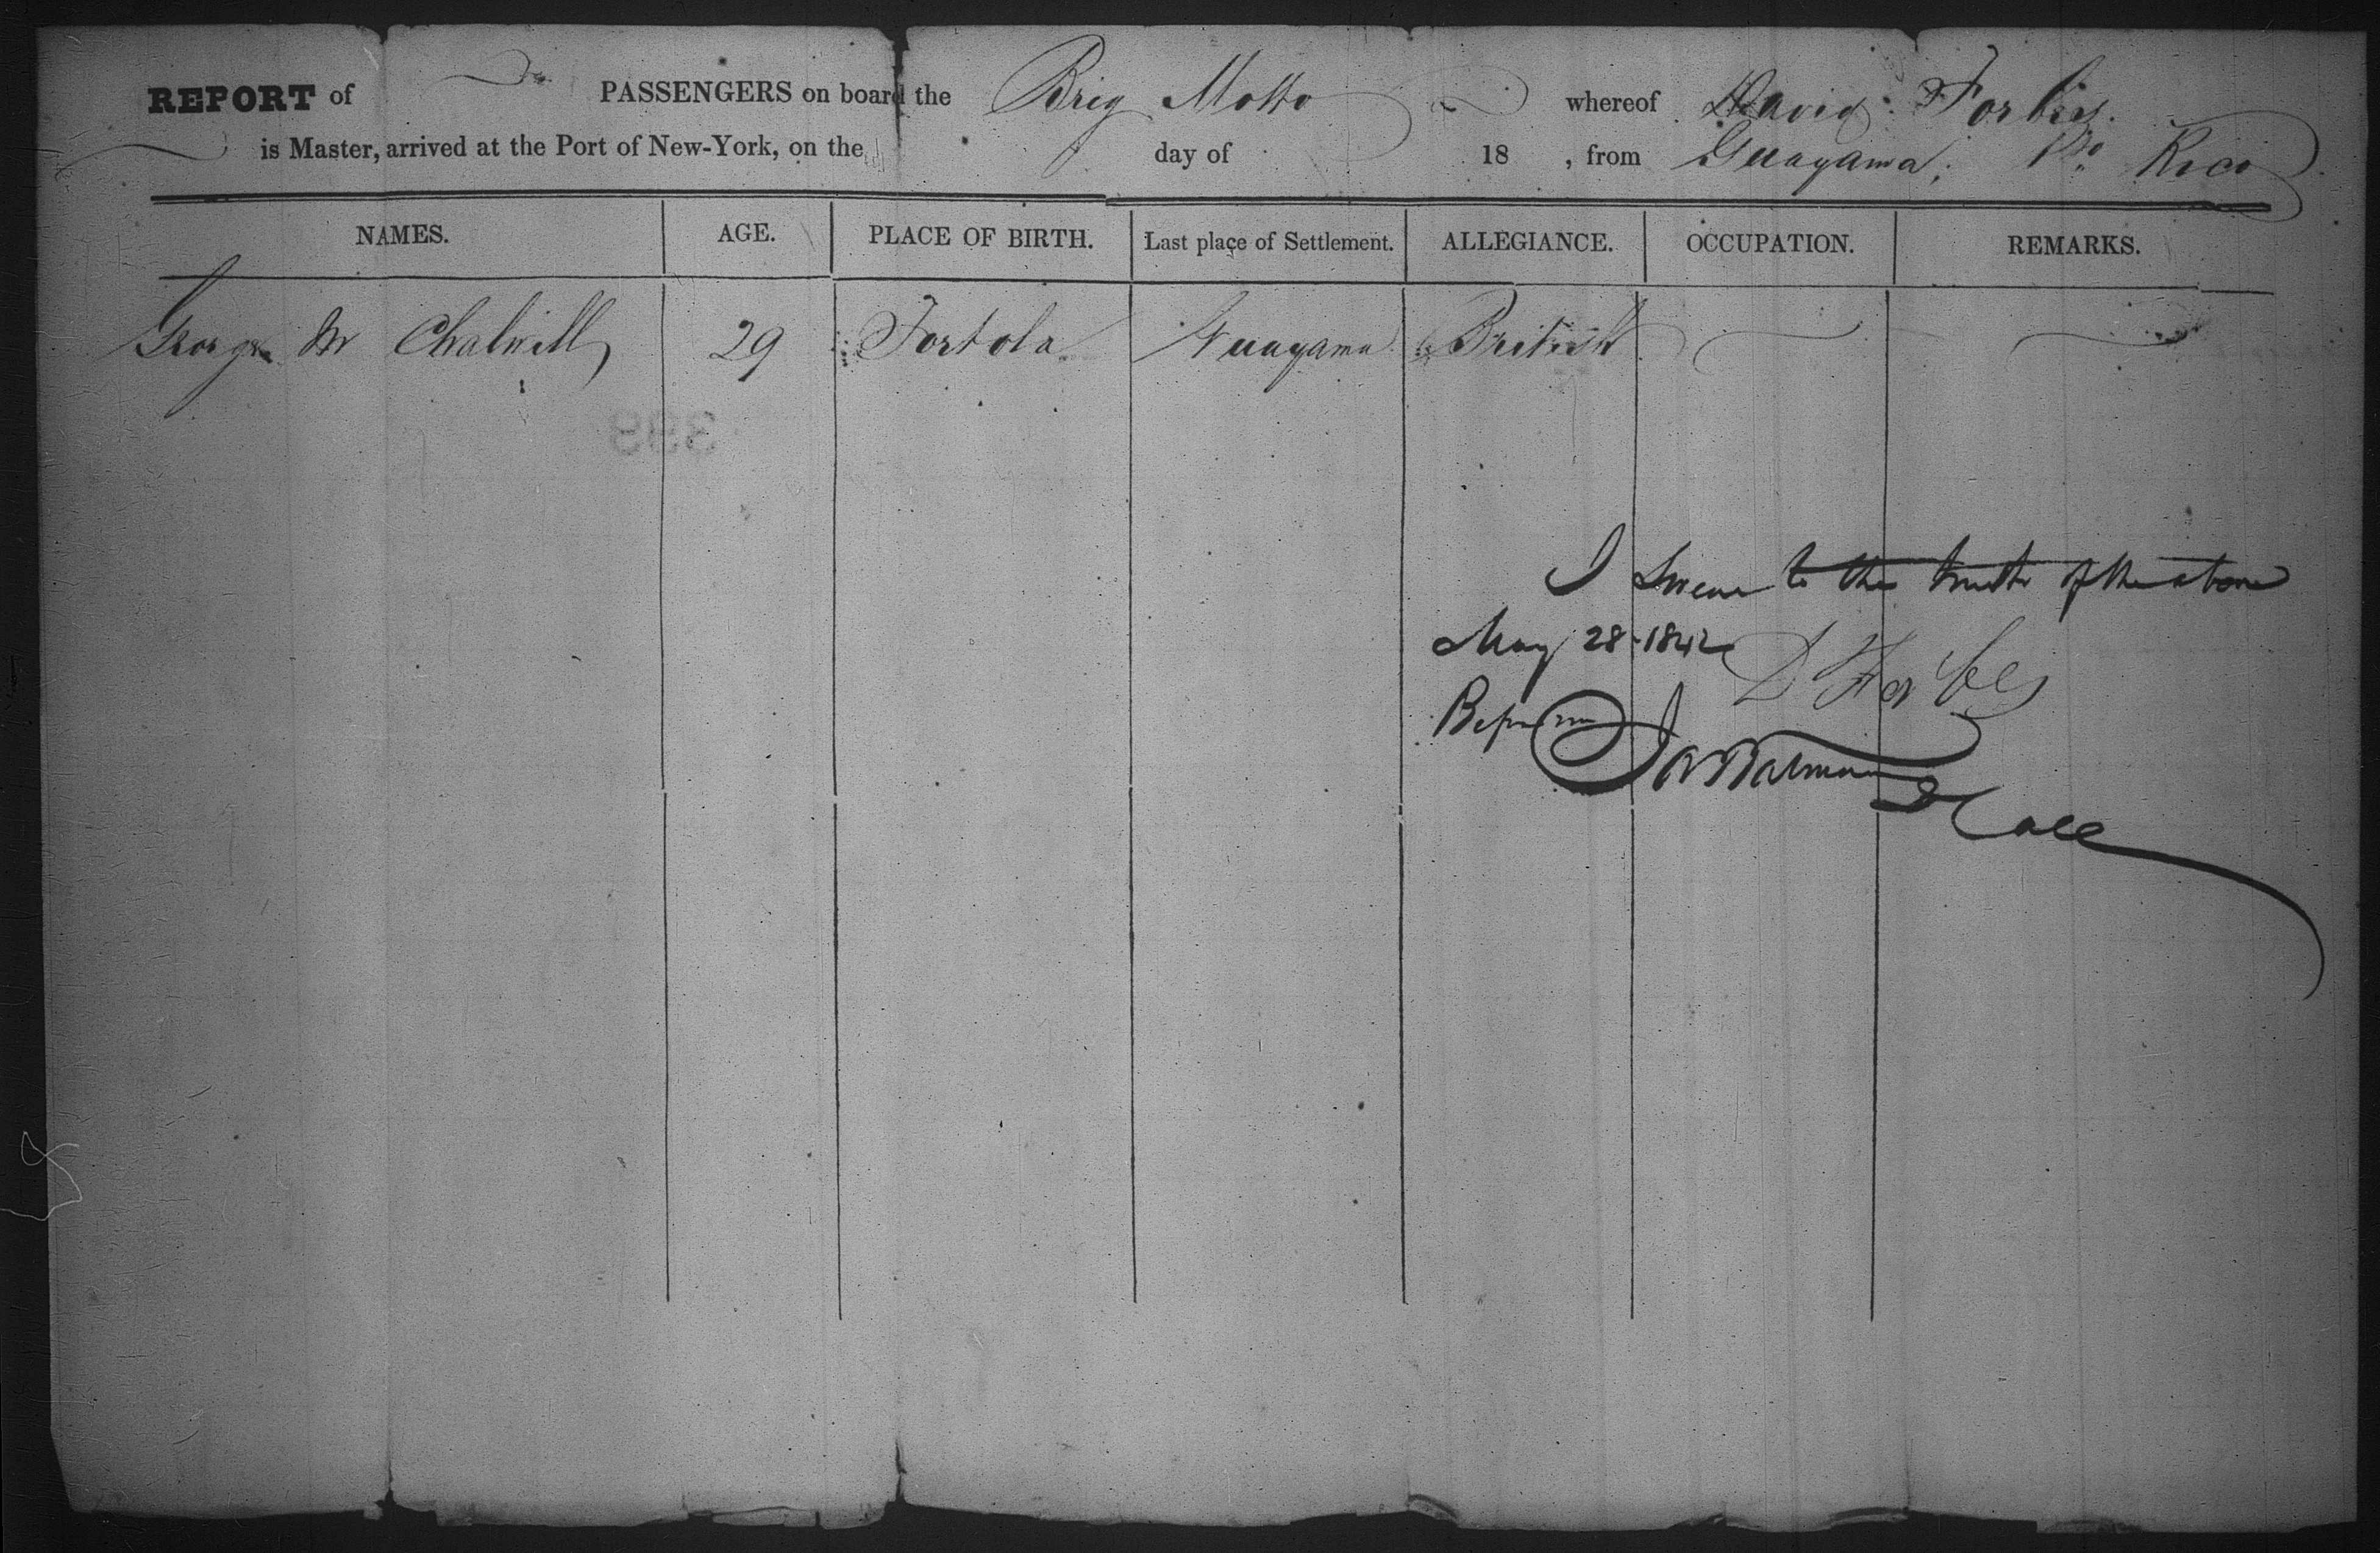 REPORT of PASSENGERS on board the Brig Motto whereof David Forbes
is Master, arrived at the Port of New-York, on the day of 18 , from Guayama, Pto Rico
NAMES. AGE. PLACE OF BIRTH. Last place of Settlement. ALLEGIANCE. OCCUPATION. REMARKS.
George W Chalwill 29 Tortola Guayama British
399
I Swear to the truth of the above
May 28 1842 D Forbes
Before me